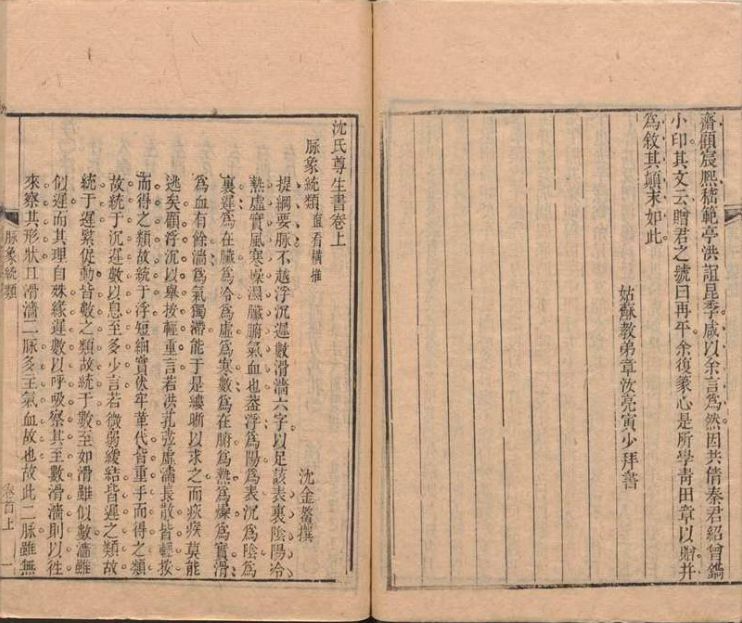 齋顧宸熙嵇範亭洪誼昆季咸以余言為然因共倩秦君紹曾鐫
小印其文云贈君之號曰再平余復篆心是所學靑田章以贈并
為敘其顛末如此
姑蘇敎弟章汝亮寅少拜書
沈氏尊生書卷上
脈象統類 直看橫推
沈金鰲撰
提綱要脈不越浮沉遲數滑濇六字以足該表裏陰陽冷
熱虛實風寒燥濕臟腑氣血也葢浮為陽為表沉為陰為
裏遲為在臟為冷為虛為寒數為在腑為熱為燥為實滑
為血有餘濇為氣獨滯能于是縷晣以求之而疾疢莫能
逃矣顧浮沉以舉按輕重言若洪芤弦虛濡長散皆輕按
而得之類故統于浮短細實伏牢革代皆重手而得之類
故統于沉遲數以息至多少言若微弱緩結皆遲之類故
統于遲緊促動皆數之類故統于數至如滑雖似數濇雖
似遲而其理自殊緣遲數以呼吸察其至數滑濇則以徃
來察其形狀且滑濇二脈多主氣血故也故此二脈雖無
脈象統類
卷首上
一